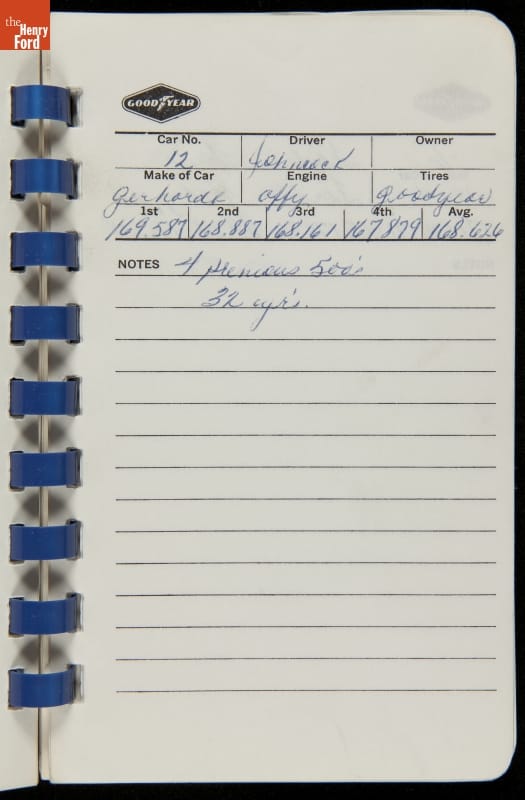 the
Henry
Ford
GOODYEAR
Car No. Driver Owner
12 Johncock
Make of Car Engine Tires
Gerhardt offy Goodyear
1st 2nd 3rd 4th Avg.
169.587 168.887 168.161 167.879 168.626
NOTES 4 previous 500's
32 yr's.